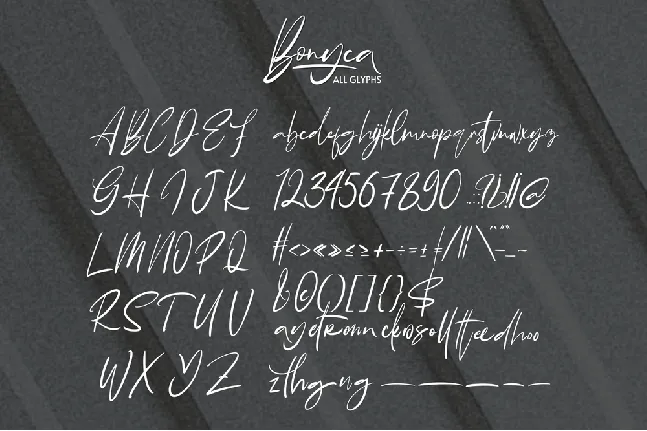 Bonyca
ALL GLYPHS
ABCDEF
GHIJK
LMNOPQ
RSTUV
WXYZ
abcdefghijklmnopqrstuvwxyz
1234567890
#<>«»≤≥+-÷=±≠/||\
&0()[]{}$